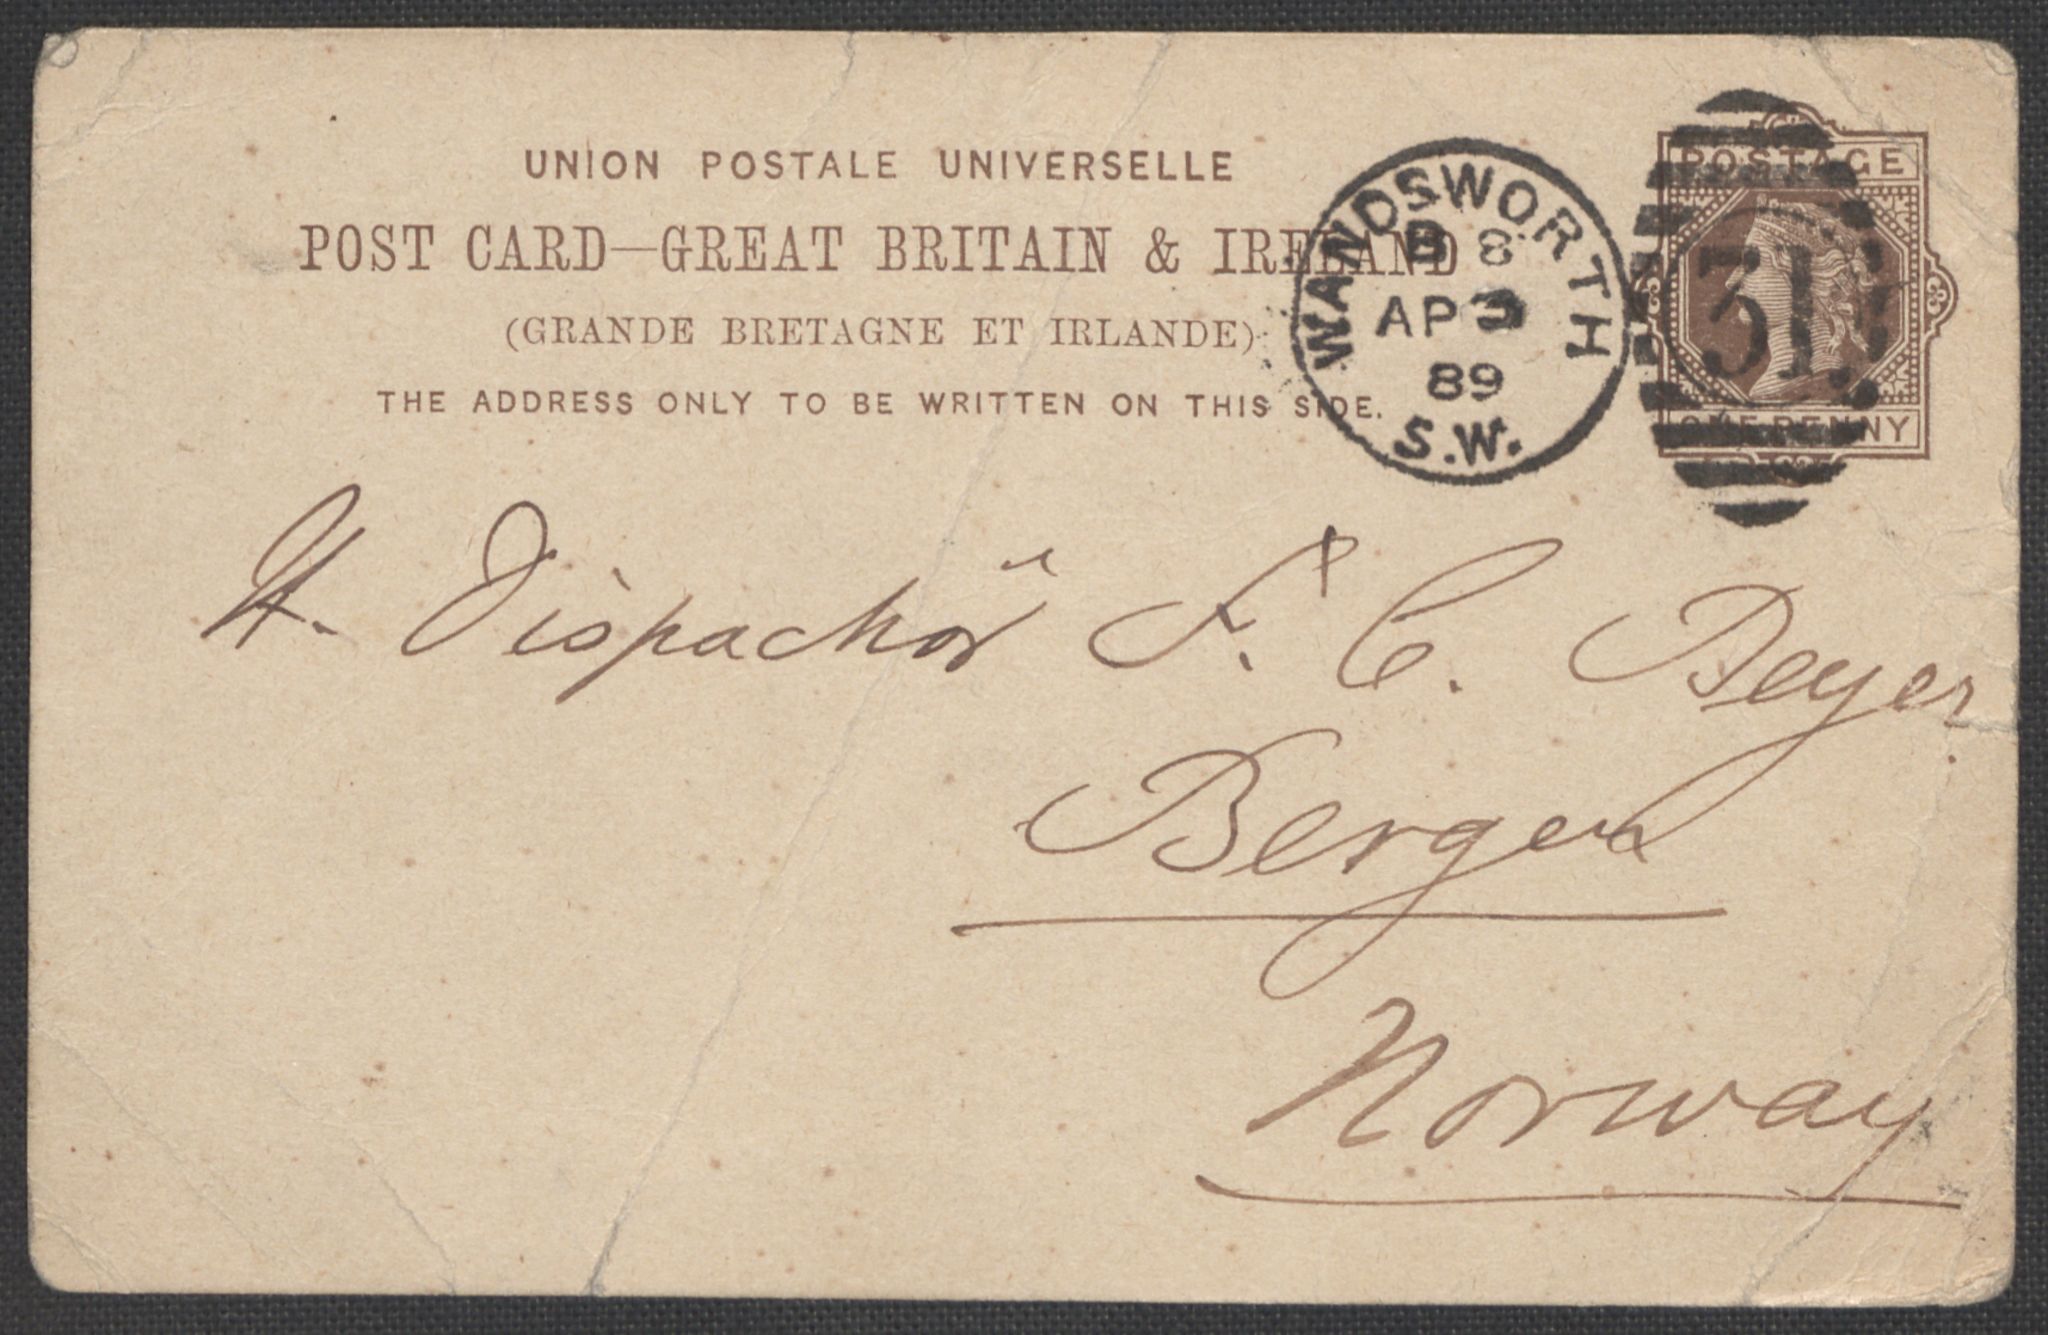 UNION POSTALE UNIVERSELLE
POST CARD—GREAT BRITAIN & IRELAND
(GRANDE BRETAGNE ET IRLANDE)
THE ADDRESS ONLY TO BE WRITTEN ON THIS SIDE.
WANDSWORTH
B 8
AP 3
89
S.W.
POSTAGE
31
ONE PENNY
H. Dispachör F. C. Beyer
Bergen
Norway